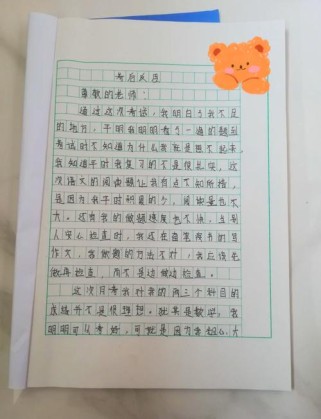 考后反思
尊敬的老师:
通过这次考试,我明白了我不足
的地方,平明我明明看了一遍的题到
考试时不知道为什么我就是想不起来,
我知道平时我复习的不是很
次语文的阅读题让我有点不知所措,
是因为我平时积累的少,阅读量也不
大。还有我的做题速度也不快,当别
人安心检查时,我还在
文,我做题的方法不对,我应该先
做再检查,而不是边做边检查。
这次月考我对我的两三个科目的
成绩并不是很理想。就其是数学,我
明明可以考好,可就是因为我粗心大